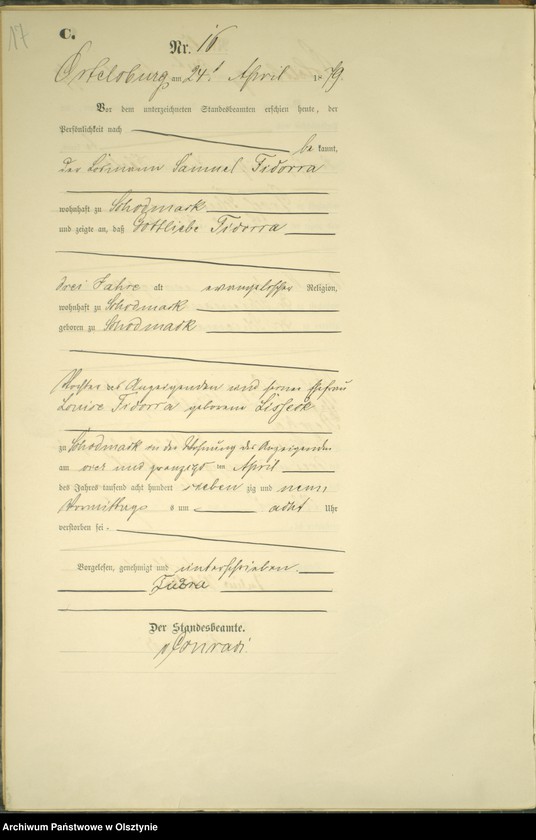 17
C.
Nr. 16
Ortelsburg am 24. April 1879.
Vor dem unterzeichneten Standesbeamten erschien heute, der
Persönlichkeit nach
be kannt,
der Losmann Samuel Fidorra
wohnhaft zu Schodmack
und zeigte an, daß Gottliebe Fidorra
drei Jahre alt evangelischer Religion,
wohnhaft zu Schodmack
geboren zu Schodmack
Tochter des Anzeigenden und seiner Ehefrau
Louise Fidorra geborene Lisseck
zu Schodmack in der Wohnung des Anzeigenden
am drei und zwanzigs ten April
des Jahres tausend acht hundert sieben zig und neun
Vormittags s um acht Uhr
verstorben sei.
Vorgelesen, genehmigt und unterschrieben.
Der Standesbeamte.
Conradi.
Archiwum Państwowe w Olsztynie